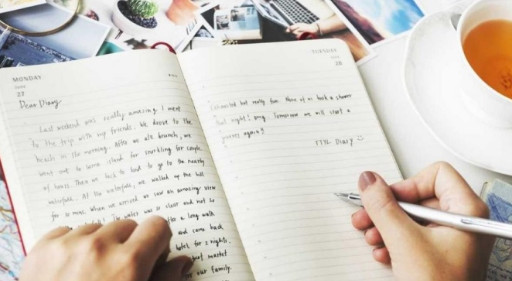 MONDAY
27
Dear Diary
Last weekend was really amazing. I went
to the trip with my friends. We drove to the
beach in the morning. After we ate brunch, we
went out to some island for snorkling for couple
of hours. Then we back to land to go to the nearby
waterfalls. At the waterfalls, we walked up the hill
for hours when we arrived we saw an amazing view
The water was so clear and not so
after a long walk
and came back
hotel for 2 nights
beef market
our family.
TUESDAY
28
exhausted but really fun. None of us took a shower
last night! omg. Tomorrow we will start a
journey again!
Diary